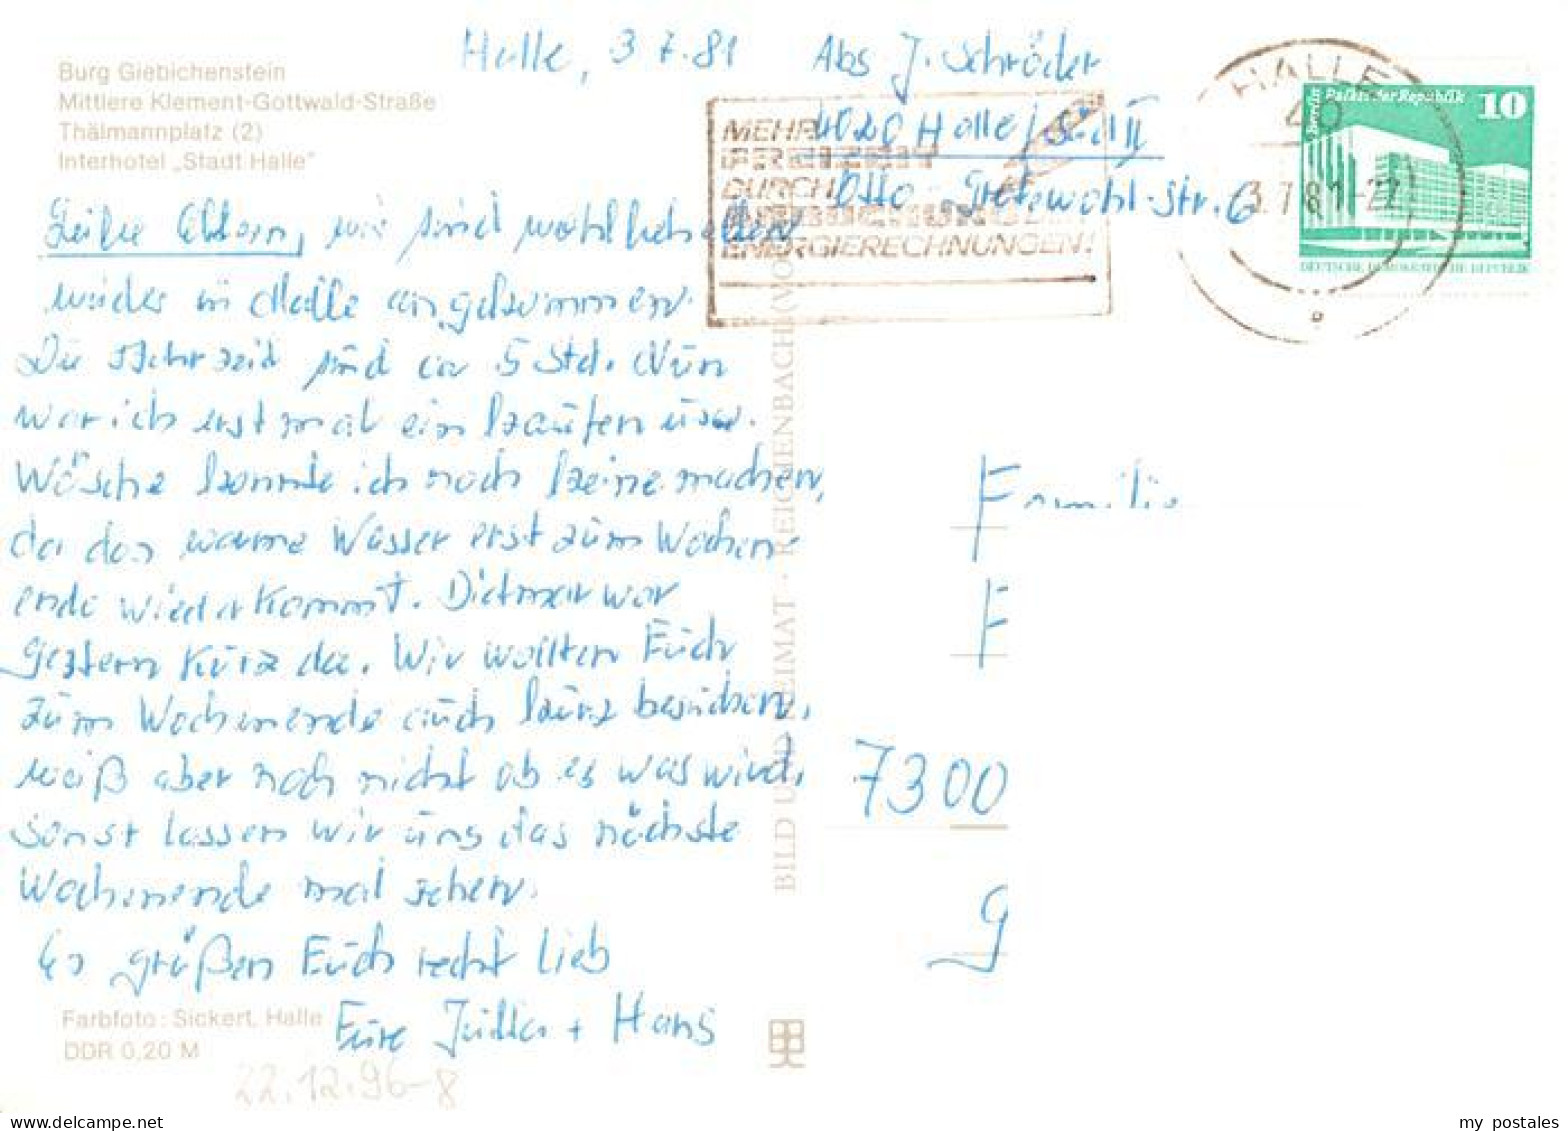 Burg Giebichenstein
Mittlere Klement-Gottwald-Straße
Thälmannplatz (2)
Interhotel „Stadt Halle"
Halle, 3 7.81
Abs J. Schröder
4020 Halle / Süd II
Otto-Grotewohl-Str. 6
MEHR
FREIZEIT
DURCH
ABBUCHUNG
ENERGIERECHNUNGEN!
HALLE
40
3.7.81-22
Berlin Palast der Republik 10
DEUTSCHE DEMOKRATISCHE REPUBLIK
Liebe Eltern, wir sind wohlbehalten
wieder in Halle angekommen.
Die Fahrzeit sind ca 5 Std. Nun
war ich erst mal einkaufen usw.
Wäsche konnte ich noch keine machen,
da das warme Wasser erst zum Wochen-
ende wiederkommt. Dietmar war
gestern kurz da. Wir wollten Euch
zum Wochenende auch kurz besuchen,
weiß aber noch nicht ob es was wird,
sonst lassen wir uns das nächste
Wochenende mal sehen.
Es grüßen Euch recht lieb
Eure Jutta + Hans
Familie
F
7300
G
BILD UND HEIMAT · REICHENBACH (VO
Farbfoto: Sickert, Halle
DDR 0,20 M
22.12.96-8
my postales